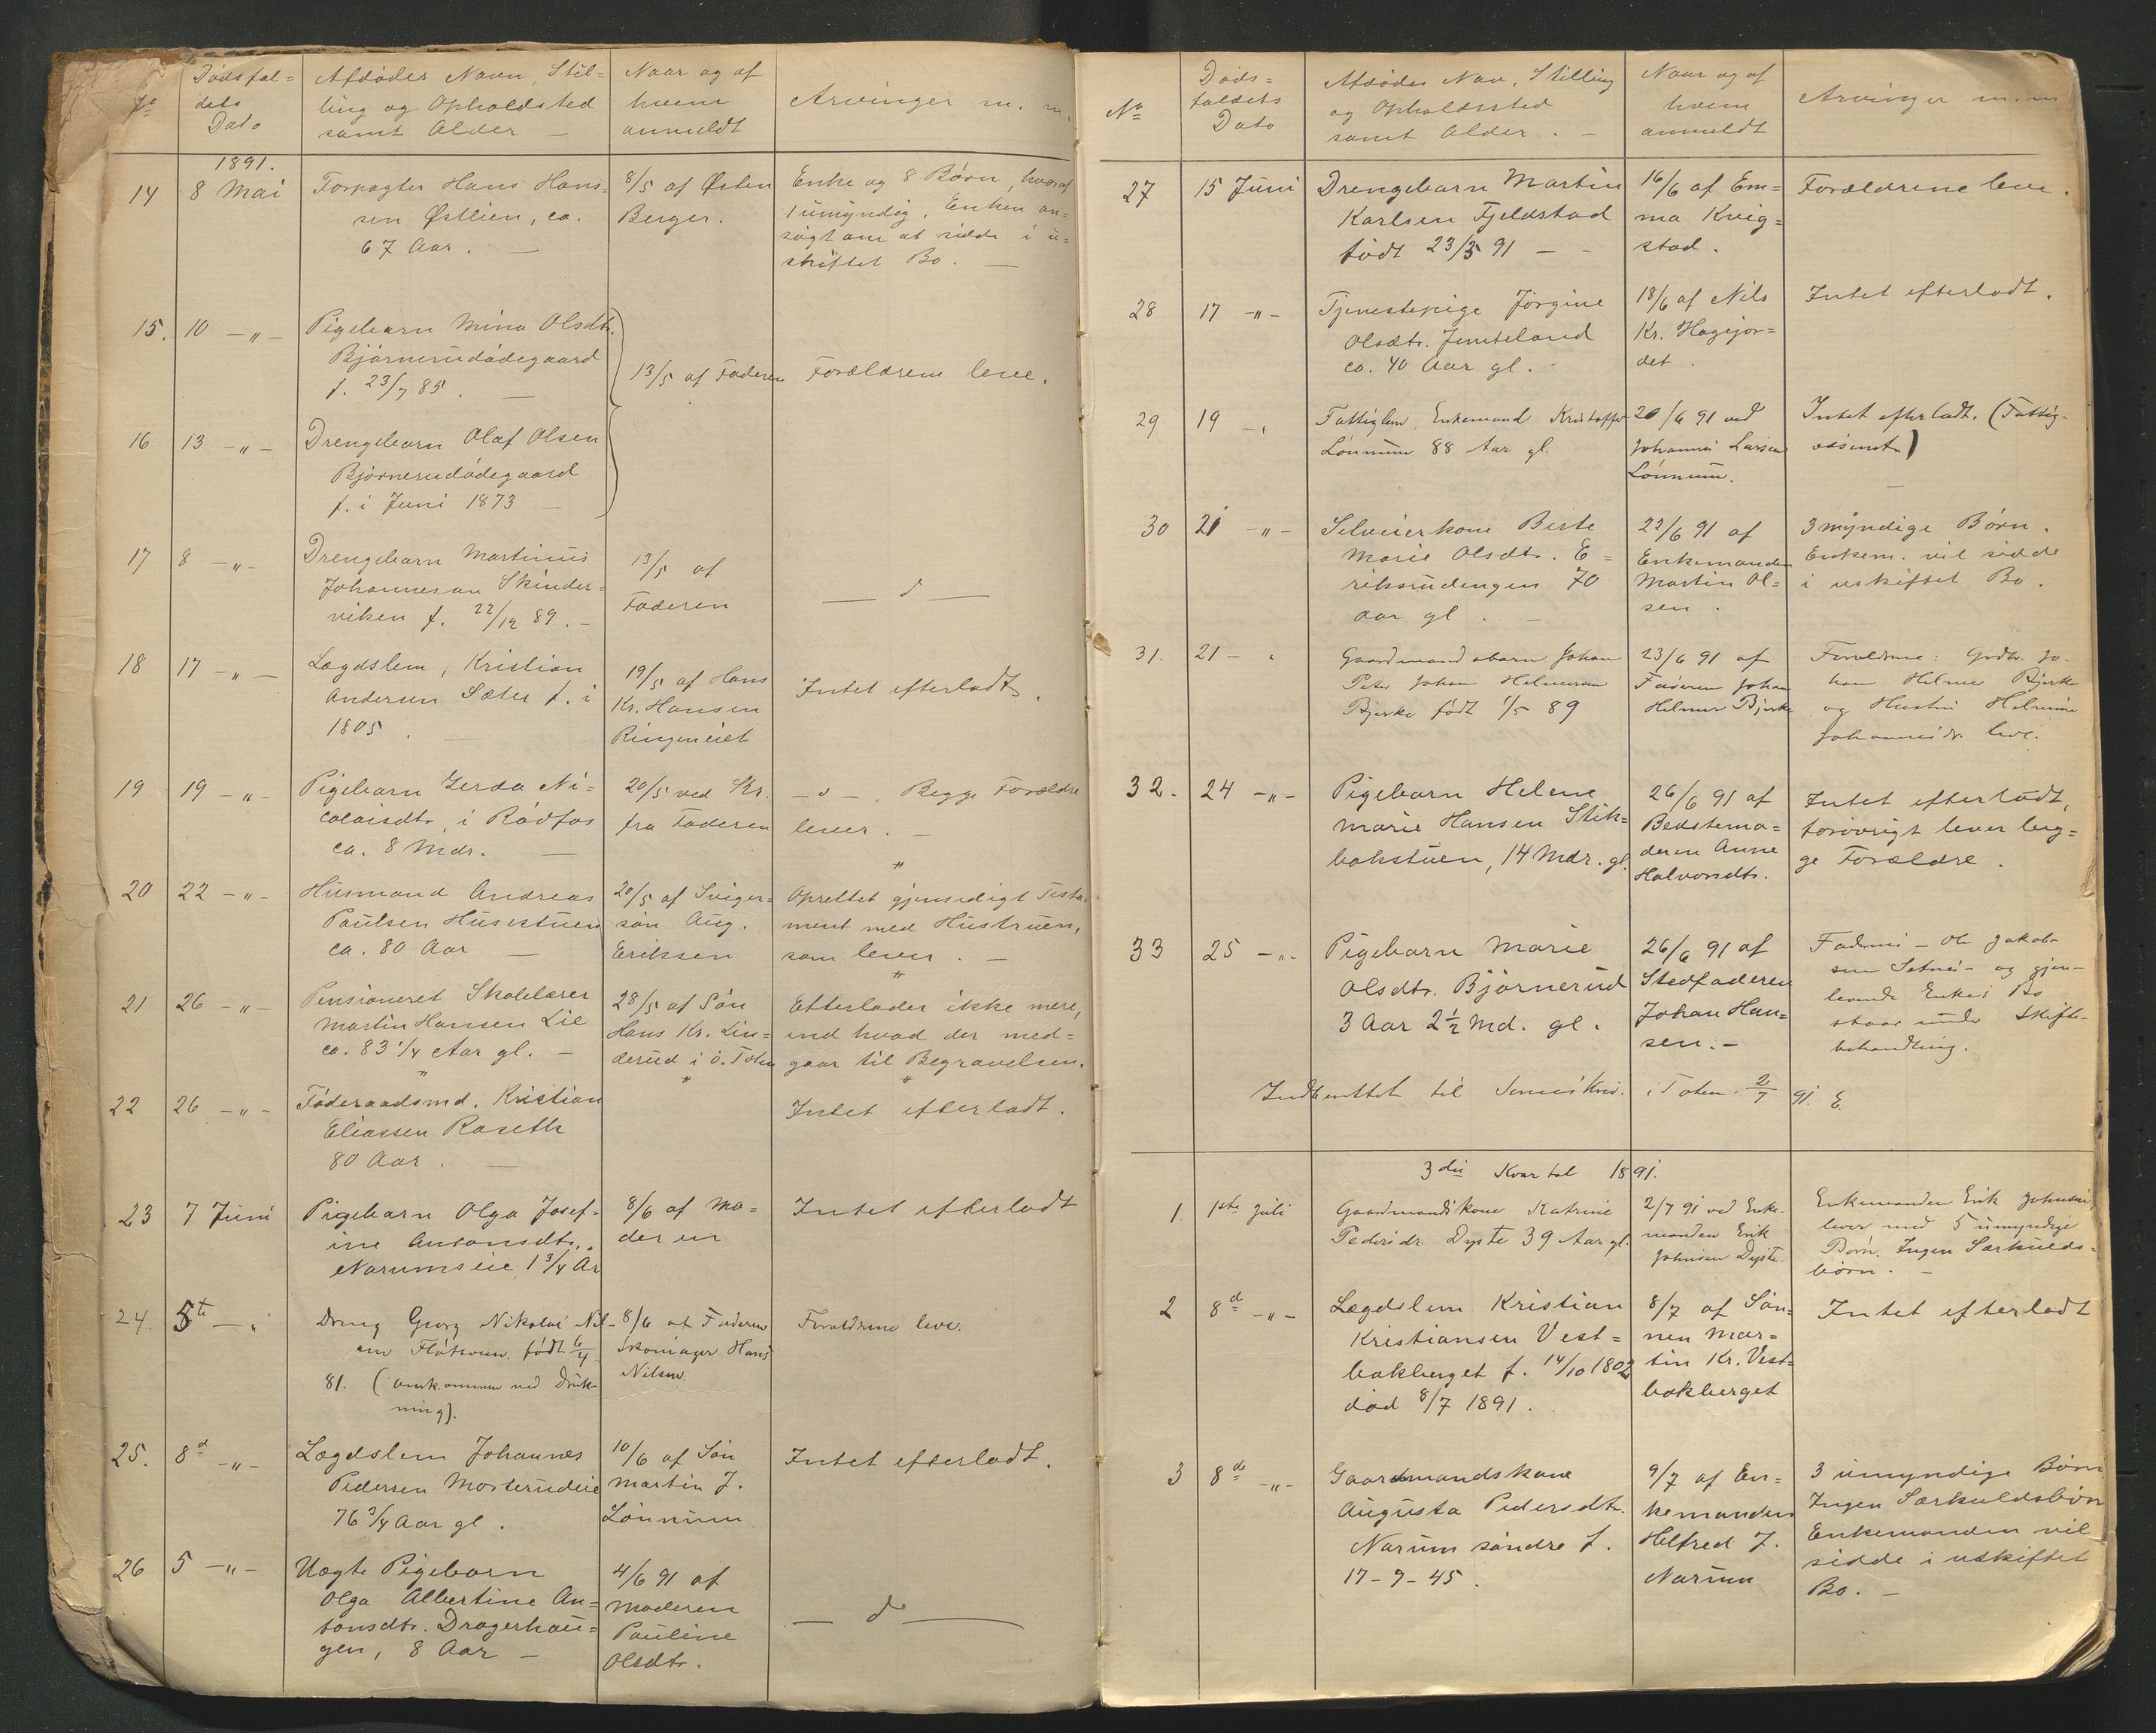 No
Dødsfal=
dets
Dato
Afdødes Navn, Stil=
ling og Opholdsted
samt Alder —
Naar og af
hvem
anmeldt
Arvinger m. m.
1891.
14
8 Mai
Forpagter Hans Hans=
sen Østlien, ca.
67 Aar. —
8/5 af Østen
Berger.
Enke og 8 Børn, hvoraf
1 umyndig. Enken an=
søgt om at sidde i u=
skiftet Bo. —
15.
10 —„—
Pigebarn Mina Olsdtr.
Bjørnerudødegaard
f. 23/7 85. —
13/5 af Faderen
Forældrene leve.
16
13 —„—
Drengebarn Olaf Olsen
Bjørnerudødegaard
f. i Juni 1873 —
17
8 —„—
Drengebarn Martinus
Johannesen Skinder=
viken f. 22/12 89. —
13/5 af
Faderen
— d —
18
17 —„—
Lægdslem, Kristian
Andersen Sæter f. i
1805. —
19/5 af Hans
Kr. Hansen
Ringeneiet
Intet efterladt.
19
19 —„—
Pigebarn Gerda Ni=
colaisdtr. i Rødfos
ca. 8 Mdr. —
20/5 ved Skr.
fra Faderen
— d —. Begge Forældre
lever. —
20
22 —„—
Husmand Andreas
Paulsen Husestuen
ca. 80 Aar —
20/5 af Sviger=
søn Aug.
Eriksen
Oprettet gjensidigt Testa=
ment med Hustruen,
som lever. —
21
26 —„—
Pensioneret Skolelærer
Martin Hansen Lie
ca. 83 1/4 Aar gl. —
28/5 af Søn
Hans Kr. Lin=
derud i Ö. Toten
Efterlader ikke mere,
end hvad der med=
gaar til Begravelsen.
22
26 —„—
Føderaadsmd. Kristian
Eliassen Roseth
80 Aar. —
„
Intet efterladt.
23
7 Juni
Pigebarn Olga Josef=
ine Antonsdtr.
Narumseie, 1 3/4 Ar
8/6 af Mo=
deren
Intet efterladt
24.
5te —„
Dreng Georg Nikolai Nil-
sen Fløtsven. født 6/4
81. (omkommen ved Druk-
ning).
8/6 af Faderen
Skomager Hans
Nilsen.
Forældrene leve.
25.
8d —„—
Lægdslem Johannes
Pedersen Mosterudeie
76 3/4 Aar gl.
10/6 af Søn
Martin J.
Lønnum
Intet efterladt.
26
5 —„—
Uægte Pigebarn
Olga Albertine An=
tonsdtr. Dragerhau=
gen, 8 Aar —
4/6 91 af
Moderen
Pauline
Olsdtr.
— do —
No
Døds=
faldets
Dato
Afdødes Nav, Stilling
og Opholdssted
samt Alder. —
Naar og af
hvem
anmeldt
Arvinger m. m
27
15 Juni
Drengebarn Martin
Karlsen Fjeldstad
født 23/5 91 —
16/6 af Em=
ma Kvig=
stad.
Forældrene leve.
28
17 —„—
Tjenestepige Jörgine
Olsdtr. Jemteland
ca. 40 Aar gl.
18/6 af Nils
Kr. Hagejor=
det.
Intet efterladt.
29
19 —„
Fattiglem, Enkemand Kristoffer
Lønnum 88 Aar gl.
20/6 91 ved
Johannes Larsen
Lønnum.
Intet efterladt. (Fattig-
væsenet)
30
21 —„—
Selveierkone Berte
Marie Olsdtr. E=
riksrudengen 70
aar gl. —
22/6 91 af
Enkemanden
Martin Ol=
sen.
3 myndige Børn.
Enkem. vil sidde
i uskiftet Bo.
31.
21 — „
Gaardmandsbarn Johan
Peter Johan Helmersen
Bjerke født 1/5 89
23/6 91 af
Faderen Johan
Helmer Bjerke
Forældrene: Grdbr. Jo-
han Helmer Bjerke
og Hustru Helmine
Johannesdr. leve.
32.
24 —„—
Pigebarn Helene
Marie Hansen Stik=
bakstuen, 14 Mdr. gl.
26/6 91 af
Bedstemo=
deren Anne
Halvorsdtr.
Intet efterladt,
forøvrigt lever beg=
ge Forældre.
33
25 —„—
Pigebarn Marie
Olsdtr. Bjørnerud
3 Aar 2 1/2 Md. gl.
26/6 91 af
Stedfaderen
Johan Han=
sen. —
Faderens — Ole Jakob-
sen — og gjen-
levende Enkes Bo
staar under Skifte-
behandling.
Indberettet til i Toten 2/7 91. E.
3die Kvartal 1891.
1.
1ste Juli
Gaardmandskone Katrine
Pedersdr. Dyste 39 Aar gl.
2/7 91 ved Enke-
manden Erik
Johnsen Dyste.
Enkemanden Erik Johnsen
lever med 5 umyndige
Børn. Ingen Særkulds-
børn. —
2
8d —„—
Lægdslem Kristian
Kristiansen Vest=
bakberget f. 14/10 1802
død 8/7 1891.
8/7 af Søn=
nen Mar=
tin Kr. Vest=
bakberget
Intet efterladt
3
8de —„—
Gaardmandskone
Augusta Pedersdtr.
Narum søndre f.
17-9-45.
9/7 af En=
kemanden
Helfred J.
Narum
3 umyndige Børn
Ingen Særkuldsbørn
Enkemanden vil
sidde i uskiftet
Bo. —